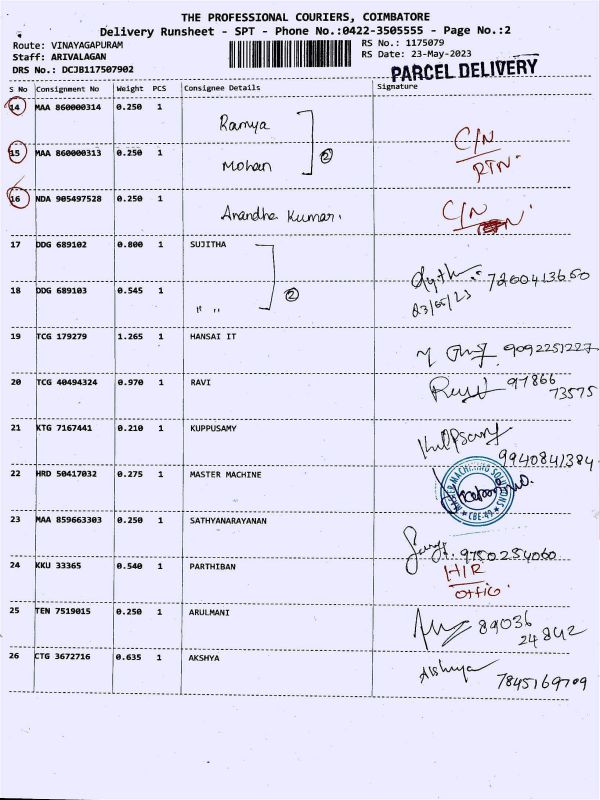 THE PROFESSIONAL COURIERS, COIMBATORE
Delivery Runsheet - SPT - Phone No.:0422-3505555 - Page No.:2
Route: VINAYAGAPURAM
RS No.: 1175079
Staff: ARIVALAGAN
RS Date: 23-May-2023
DRS No.: DCJB117507902
PARCEL DELIVERY
S No Consignment No Weight PCS Consignee Details Signature
14 MAA 860000314 0.250 1 Ramya
15 MAA 860000313 0.250 1 Mohan ② C/N RTN.
16 NDA 905497528 0.250 1 Anandha Kumar. C/N
17 DDG 689102 0.800 1 SUJITHA
7200413650
18 DDG 689103 0.545 1 " " ② 23/05/23
19 TCG 179279 1.265 1 HANSAI IT 9092251227
20 TCG 40494324 0.970 1 RAVI 97866
73575
21 KTG 7167441 0.210 1 KUPPUSAMY
9940841384
22 HRD 50417032 0.275 1 MASTER MACHINE
CBE-49
23 MAA 859663303 0.250 1 SATHYANARAYANAN
9750254060
24 KKU 33365 0.540 1 PARTHIBAN H/R
Office
25 TEN 7519015 0.250 1 ARULMANI 89036
24842
26 CTG 3672716 0.635 1 AKSHYA Akshya
7845169709